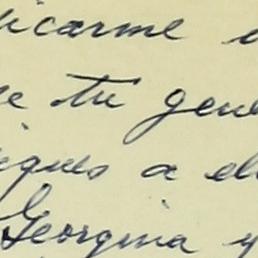 icarme a
e tu gene
igues a el
Georgina y